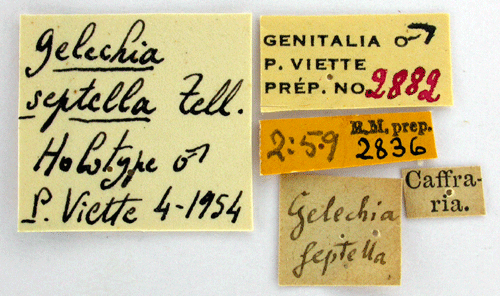 Gelechia
septella Zell.
Holotype ♂
P. Viette 4-1954
GENITALIA ♂
P. VIETTE
PRÉP. NO. 2882
2:59
R.M. prep.
2836
Gelechia
septella
Caffra-
ria.